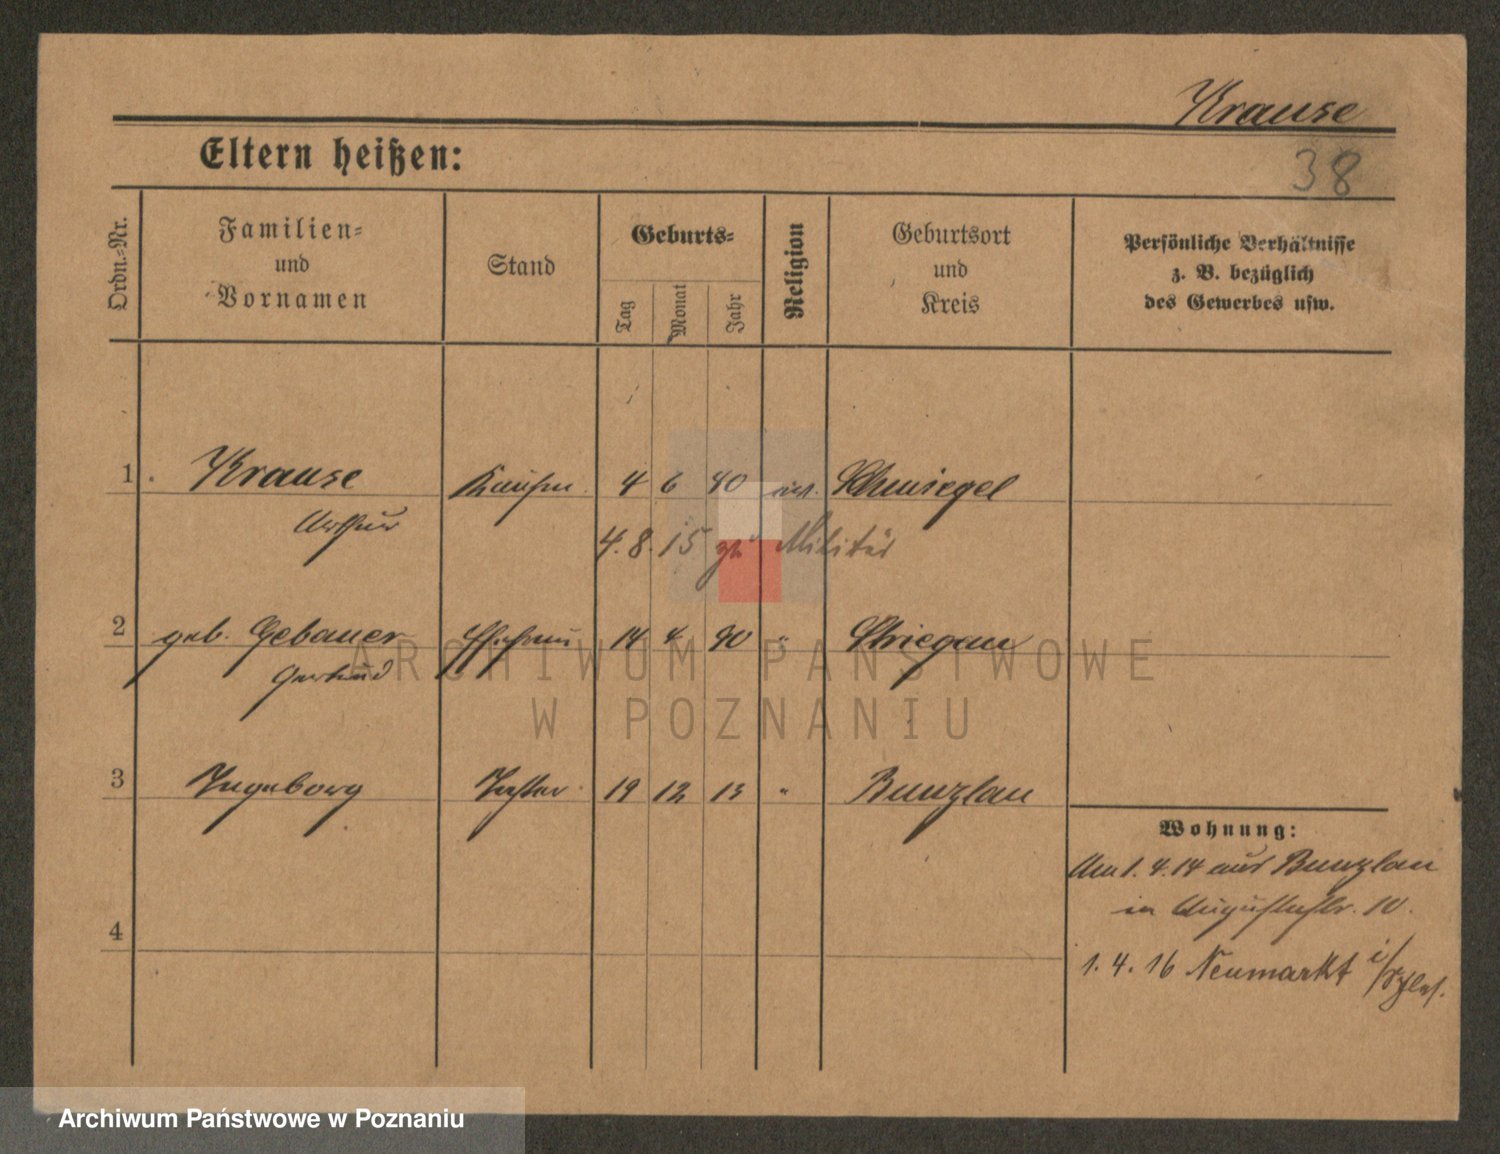 Krause
38
Eltern heißen:
Ordn.=Nr.
Familien=
und
Vornamen
Stand
Geburts=
Tag
Monat
Jahr
Religion
Geburtsort
und
Kreis
Persönliche Verhältnisse
z. B. bezüglich
des Gewerbes usw.
1 Krause Kaufm. 4 6 80 ev. Schmiegel
Arthur
4. 8. 15 zu Militär
2 geb. Gebauer Ehefrau 14 4 90 " Striegau
Gertrud
3 Ingeborg Tochter 19 12 13 " Bunzlau
4
Wohnung:
Am 1. 4. 14 aus Bunzlau
in Augustastr. 10.
1. 4. 16 Neumarkt i/Schles.
ARCHIWUM PAŃSTWOWE
W POZNANIU
Archiwum Państwowe w Poznaniu